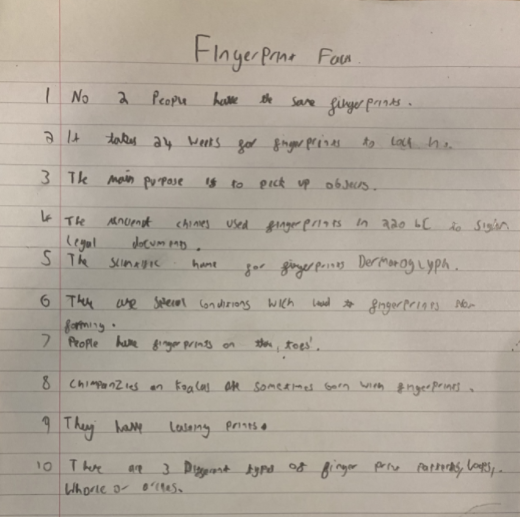 Fingerprint
1 No 2 People have the same fingerprints.
2 It takes 24 weeks for fingerprints to lock in.
3 The main purpose is to pick up objecs.
4 The Ancient chines used fingerprints in 220 bC to
legal documents.
5 The name for fingerprints Dermatoglyph.
6 are special conditions lead to fingerprints
forming.
7 People have fingerprints on toes.
8 Chimpanzies on koalas are sometimes born with fingerprints.
9 They have prints.
10 There are 3 Different types of finger patterns, loops,
Whorle or